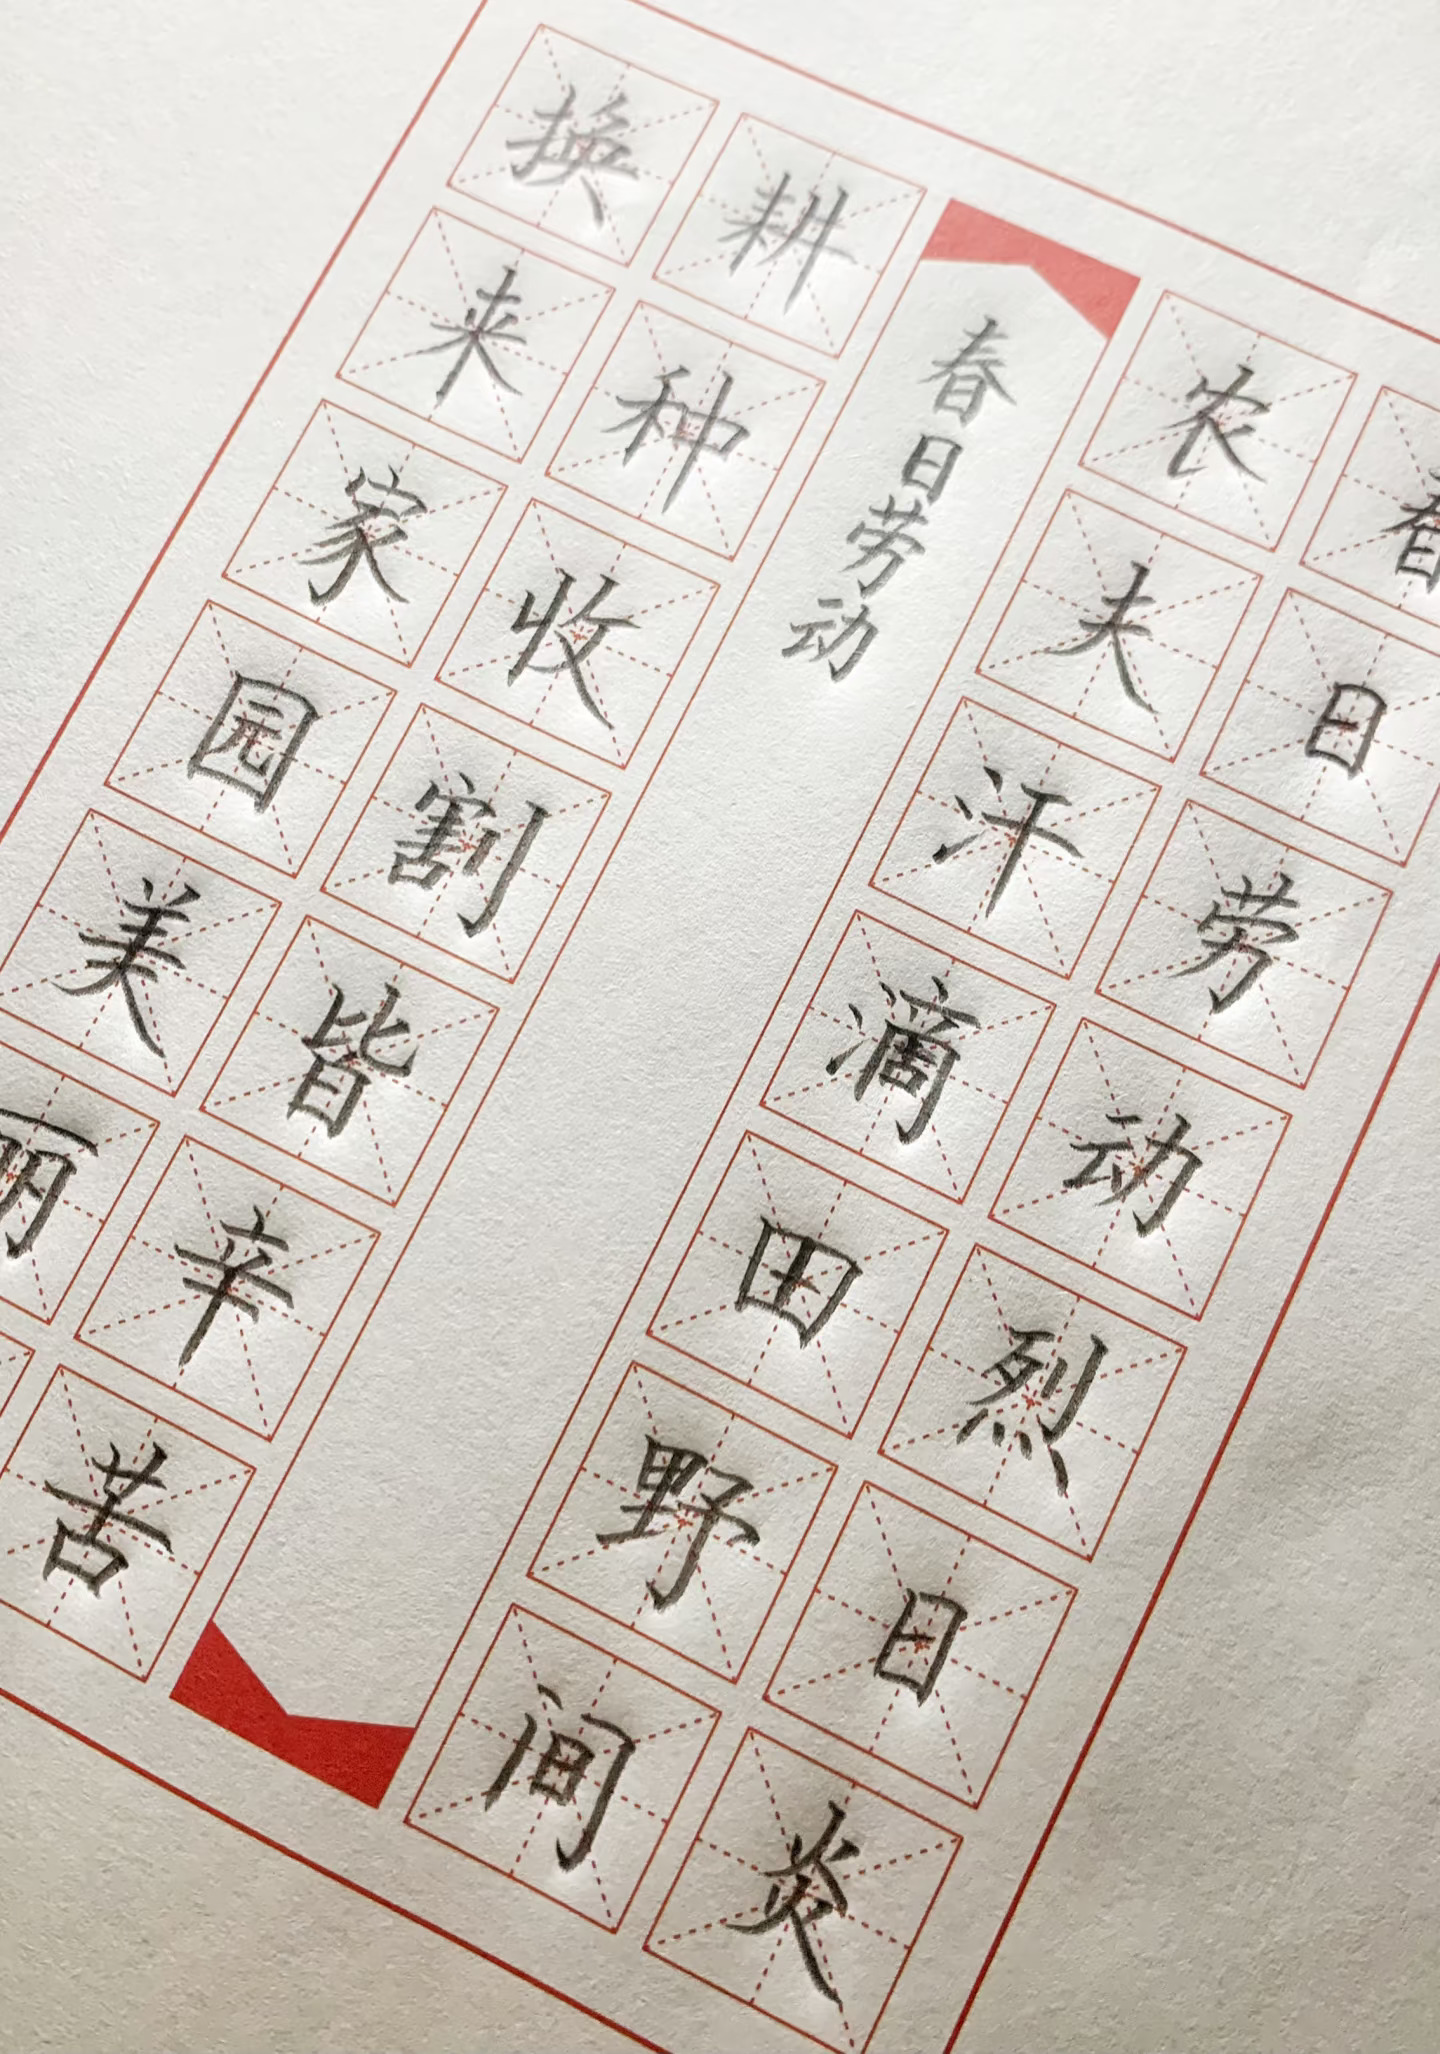 春日劳动烈日炎
农夫汗滴田野间
春日劳动
耕种收割皆辛苦
换来家园美丽